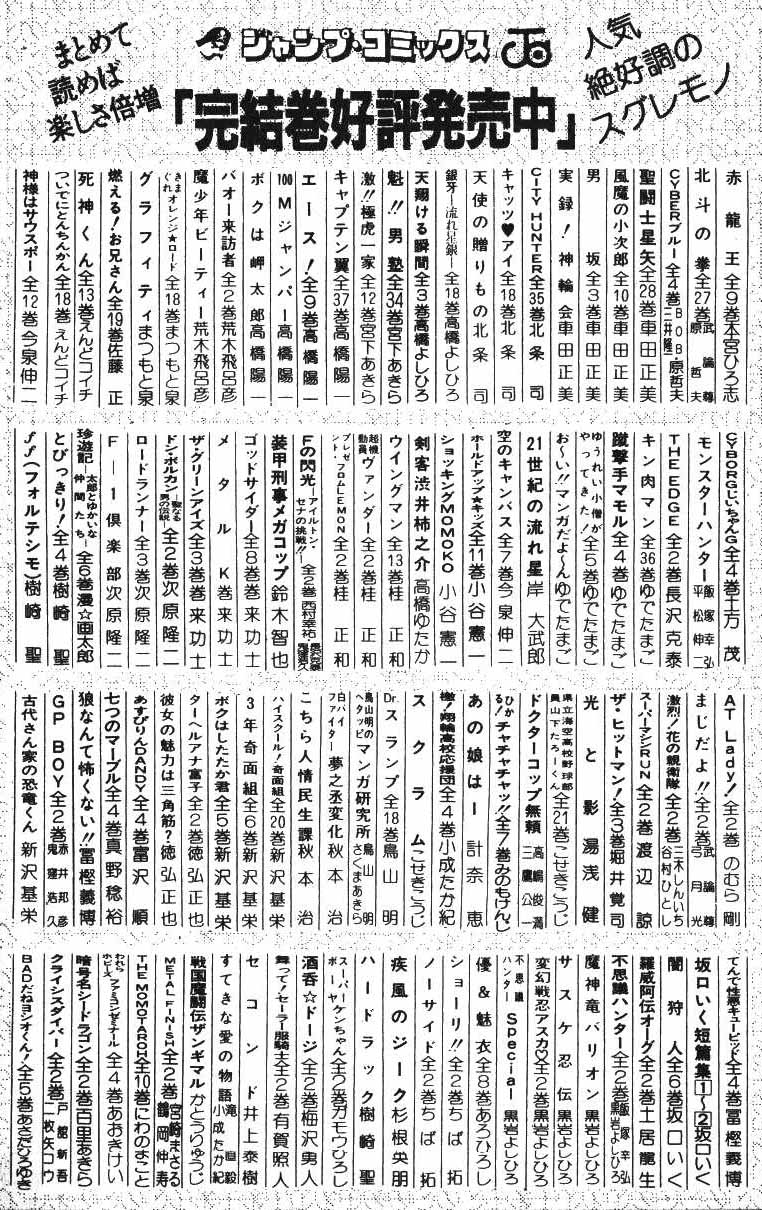 まとめて
読めば
楽しさ倍増
ジャンプ・コミックス
人気
絶好調の
スグレモノ
「完結巻好評発売中」
赤龍王全9巻本宮ひろ志
北斗の拳全27巻武論尊 原哲夫
CYBERブルー全4巻BOB・原哲夫 三井隆一
聖闘士星矢全28巻車田正美
風魔の小次郎全10巻車田正美
男坂全3巻車田正美
実録!神輪会車田正美
CITY HUNTER全35巻北条司
キャッツ♥アイ全18巻北条司
天使の贈りもの北条司
銀牙ー流れ星銀ー全18巻高橋よしひろ
天翔ける瞬間全3巻高橋よしひろ
魁!!男塾全34巻宮下あきら
激!!極虎一家全12巻宮下あきら
キャプテン翼全37巻高橋陽一
エース!全9巻高橋陽一
100Mジャンパー高橋陽一
ボクは岬太郎高橋陽一
バオー来訪者全2巻荒木飛呂彦
魔少年ビーティー荒木飛呂彦
きまぐれオレンジ★ロード全18巻まつもと泉
グラフィティまつもと泉
燃える!お兄さん全19巻佐藤正
死神くん全13巻えんどコイチ
ついでにとんちんかん全18巻えんどコイチ
神様はサウスポー全12巻今泉伸二
CYBORGじいちゃんG全4巻土方茂
モンスターハンター飯塚幸弘 平松伸二
THE EDGE全2巻長沢克泰
キン肉マン全36巻ゆでたまご
蹴撃手マモル全4巻ゆでたまご
ゆうれい小僧がやってきた!全5巻ゆでたまご
お〜い!!マンガだよ〜んゆでたまご
21世紀の流れ星岸大武郎
空のキャンバス全7巻今泉伸二
ホールドアップ★キッズ全11巻小谷憲一
ショッキングMOMOKO小谷憲一
剣客渋井柿之介高橋ゆたか
ウイングマン全13巻桂正和
超機動員ヴァンダー全2巻桂正和
プレゼント・フロムLEMON全2巻桂正和
Fの閃光ーアイルトン・セナの挑戦!!ー全2巻西村幸祐・
装甲刑事メガコップ鈴木智也
ゴッドサイダー全8巻巻来功士
メタルK巻来功士
ザ・グリーンアイズ全3巻巻来功士
ドン・ボルカン―聖なる男の伝説全2巻次原隆二
ロードランナー全3巻次原隆二
F―1倶楽部次原隆二
珍遊記太郎とゆかいな仲間たち全6巻漫☆画太郎
とびっきり!全4巻樹崎聖
ff(フォルテシモ)樹崎聖
AT Lady!全2巻のむら剛
まじだよ!!全2巻武論尊 弓月光
激烈!花の親衛隊全2巻三木しんいち 谷村ひとし
スーパーマシンRUN全2巻渡辺諒
ザ・ヒットマン!全3巻堀井覚司
光と影湯浅健
県立海空高校野球部員山下たろーくん全21巻こせきこうじ
ドクターコップ無頼高嶋俊満 三鷹公一
ひかる!チャチャチャッ!!全7巻みのもけんじ
あの娘はー計奈恵
檄!翔輪高校応援団全4巻小成たか紀
スクラムこせきこうじ
Dr.スランプ全18巻鳥山明
鳥山明のヘタッピマンガ研究所鳥山明 さくまあきら
白バイファイター夢之丞変化秋本治
こちら人情民生課秋本治
ハイスクール!奇面組全20巻新沢基栄
3年奇面組全6巻新沢基栄
ボクはしたたか君全5巻新沢基栄
ターヘルアナ富子全2巻徳弘正也
彼女の魅力は三角筋?徳弘正也
あすぴりんDANDY全4巻富沢順
七つのマーブル全4巻真野稔裕
狼なんて怖くない!!冨樫義博
GP BOY全2巻赤井邦彦 鬼窪浩久
古代さん家の恐竜くん新沢基栄
てんで性悪キューピッド全4巻冨樫義博
坂口いく短篇集1〜2坂口いく
闇狩人全6巻坂口いく
羅威阿伝オーグ全2巻土居龍生
不思議ハンター全2巻飯塚幸弘 黒岩よしひろ
魔神竜バリオン黒岩よしひろ
サスケ忍伝黒岩よしひろ
変幻戦忍アスカ♡全2巻黒岩よしひろ
不思議ハンターSpecial黒岩よしひろ
優&魅衣全8巻あろひろし
ショーリ!!全2巻ちば拓
ノーサイド全2巻ちば拓
疾風のジーク杉根央朋
ハードラック樹崎聖
スーパーボーヤーケンちゃん全2巻ガモウひろし
酒呑☆ドージ全2巻梅沢勇人
舞って!セーラー服騎士全2巻有賀照人
セコンド井上泰樹
すてきな愛の物語滝直毅 小成たか紀
戦国魔闘伝ザンギマルかとうりゅうじ
METAL FINISH全2巻宮崎まさる 鶴岡伸寿
THE MOMOTAROH全10巻にわのまこと
われらホビーズファミコンゼミナール全4巻あおきけい
暗号名シードラゴン全2巻百里あきら
クライシスダイバー全2巻戸舘新吾 二枚矢コウ
BADだねヨシオくん!全5巻あさだひろゆき